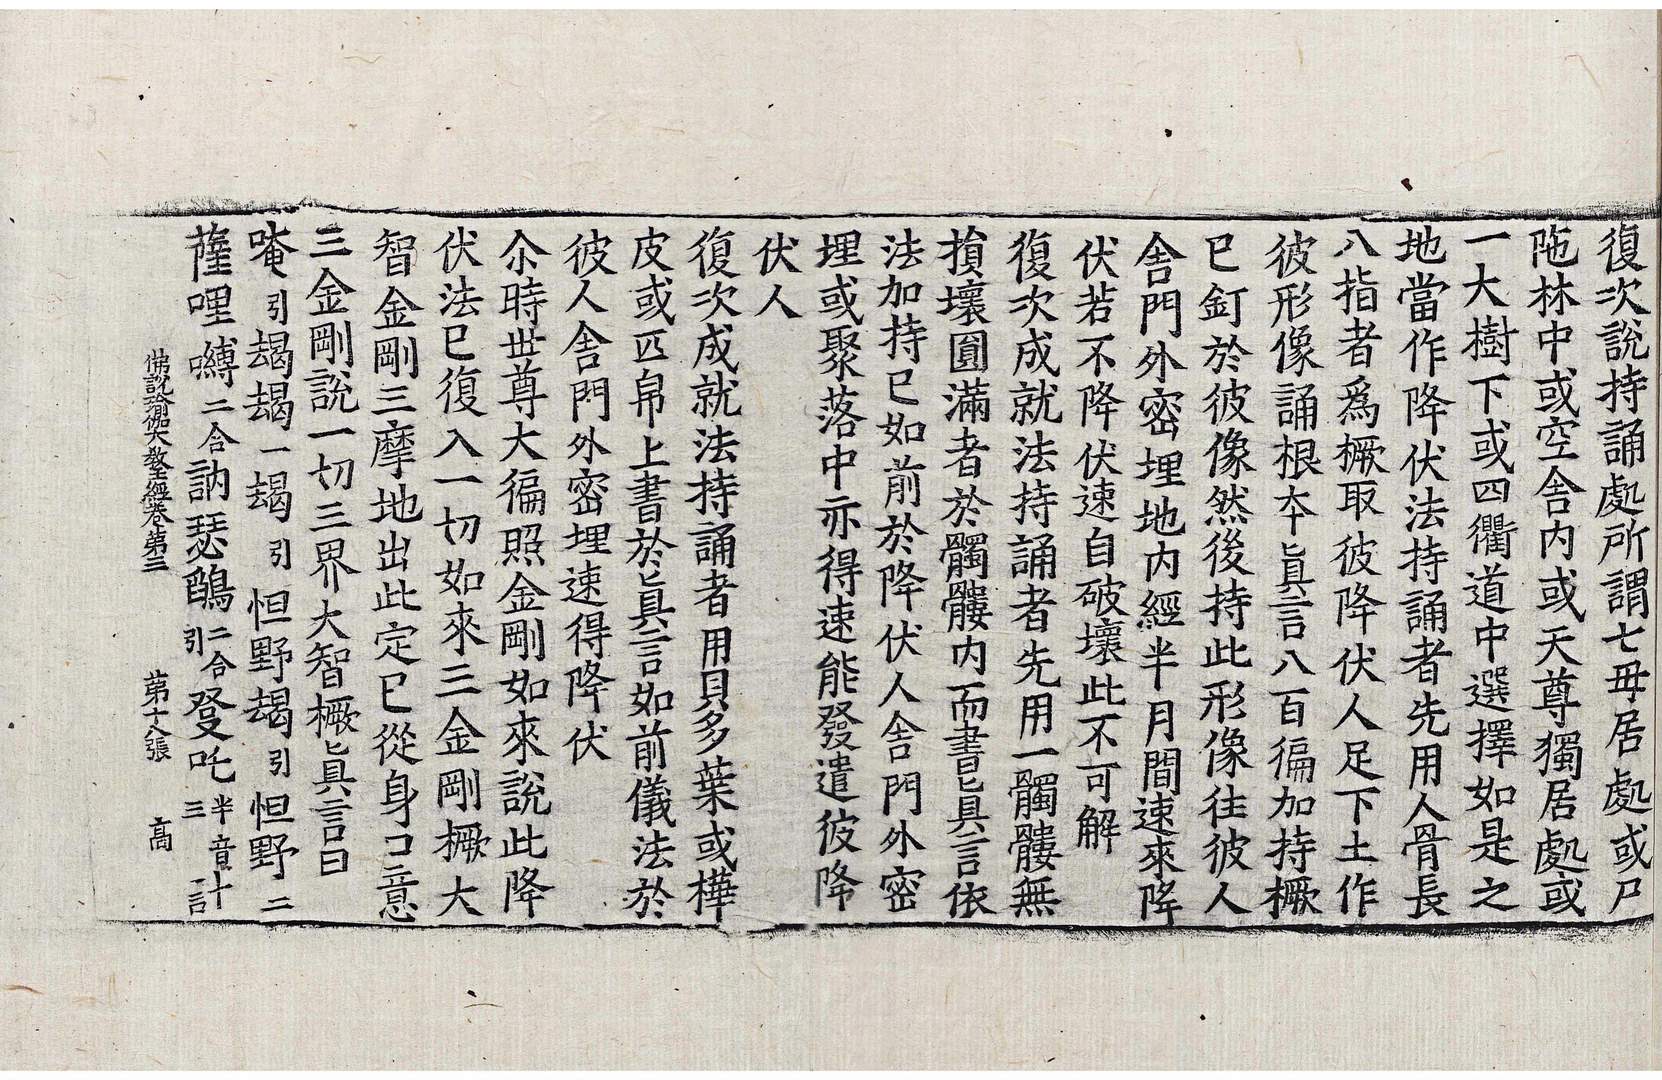 復次說持誦處所謂七毋居處或尸
陁林中或空舍內或天尊獨居處或
一大樹下或四衢道中選擇如是之
地當作降伏法持誦者先用人骨長
八指者爲橛取彼降伏人足下土作
彼形像誦根夲眞言八百徧加持橛
已釘於彼像然後持此形像往彼人
舍門外密埋地內經半月間速來降
伏若不降伏速自破壞此不可解
復次成就法持誦者先用一髑髏無
損壞圓滿者於髑髏內而書眞言依
法加持已如前於降伏人舍門外密
埋或聚落中亦得速能發遣彼降
伏人
復次成就法持誦者用貝多葉或樺
皮或匹帛上書於眞言如前儀法於
彼人舍門外密埋速得降伏
尒時世尊大徧照金剛如來說此降
伏法已復入一切如來三金剛橛大
智金剛三摩地出此定已從身口意
三金剛說一切三界大智橛眞言曰
唵引朅朅一朅引怛野朅引怛野二
薩哩嚩二合訥瑟鴯二合引發吒半音三計
佛說瑜伽大教王經卷第三 第十八張 高